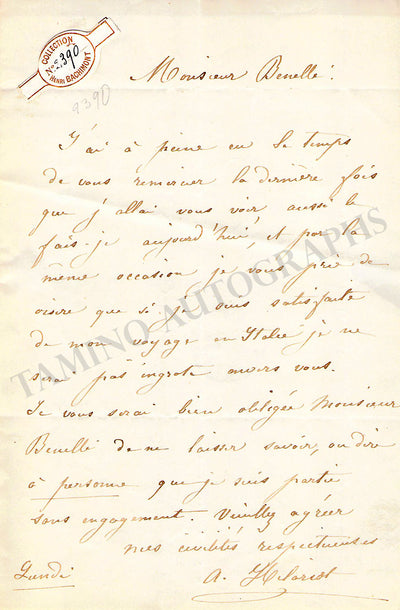 COLLECTION
No 2.390
HENRI BACHIMONT
2390
Monsieur Benelli
J'ai à peine eu le temps
de vous remercier la dernière fois
que j'allai vous voir aussi le
fais-je aujourd'hui, et par la
même occasion je vous prie de
croire que si je suis satisfaite
de mon voyage en Italie je ne
serai pas ingrate envers vous.
Je vous serai bien obligée Monsieur
Benelli de ne laisser savoir, ou dire
à personne que je suis partie
sans engagement. Veuillez agréer
mes civilités respectueuses
Lundi
A.
TAMINO AUTOGRAPHS